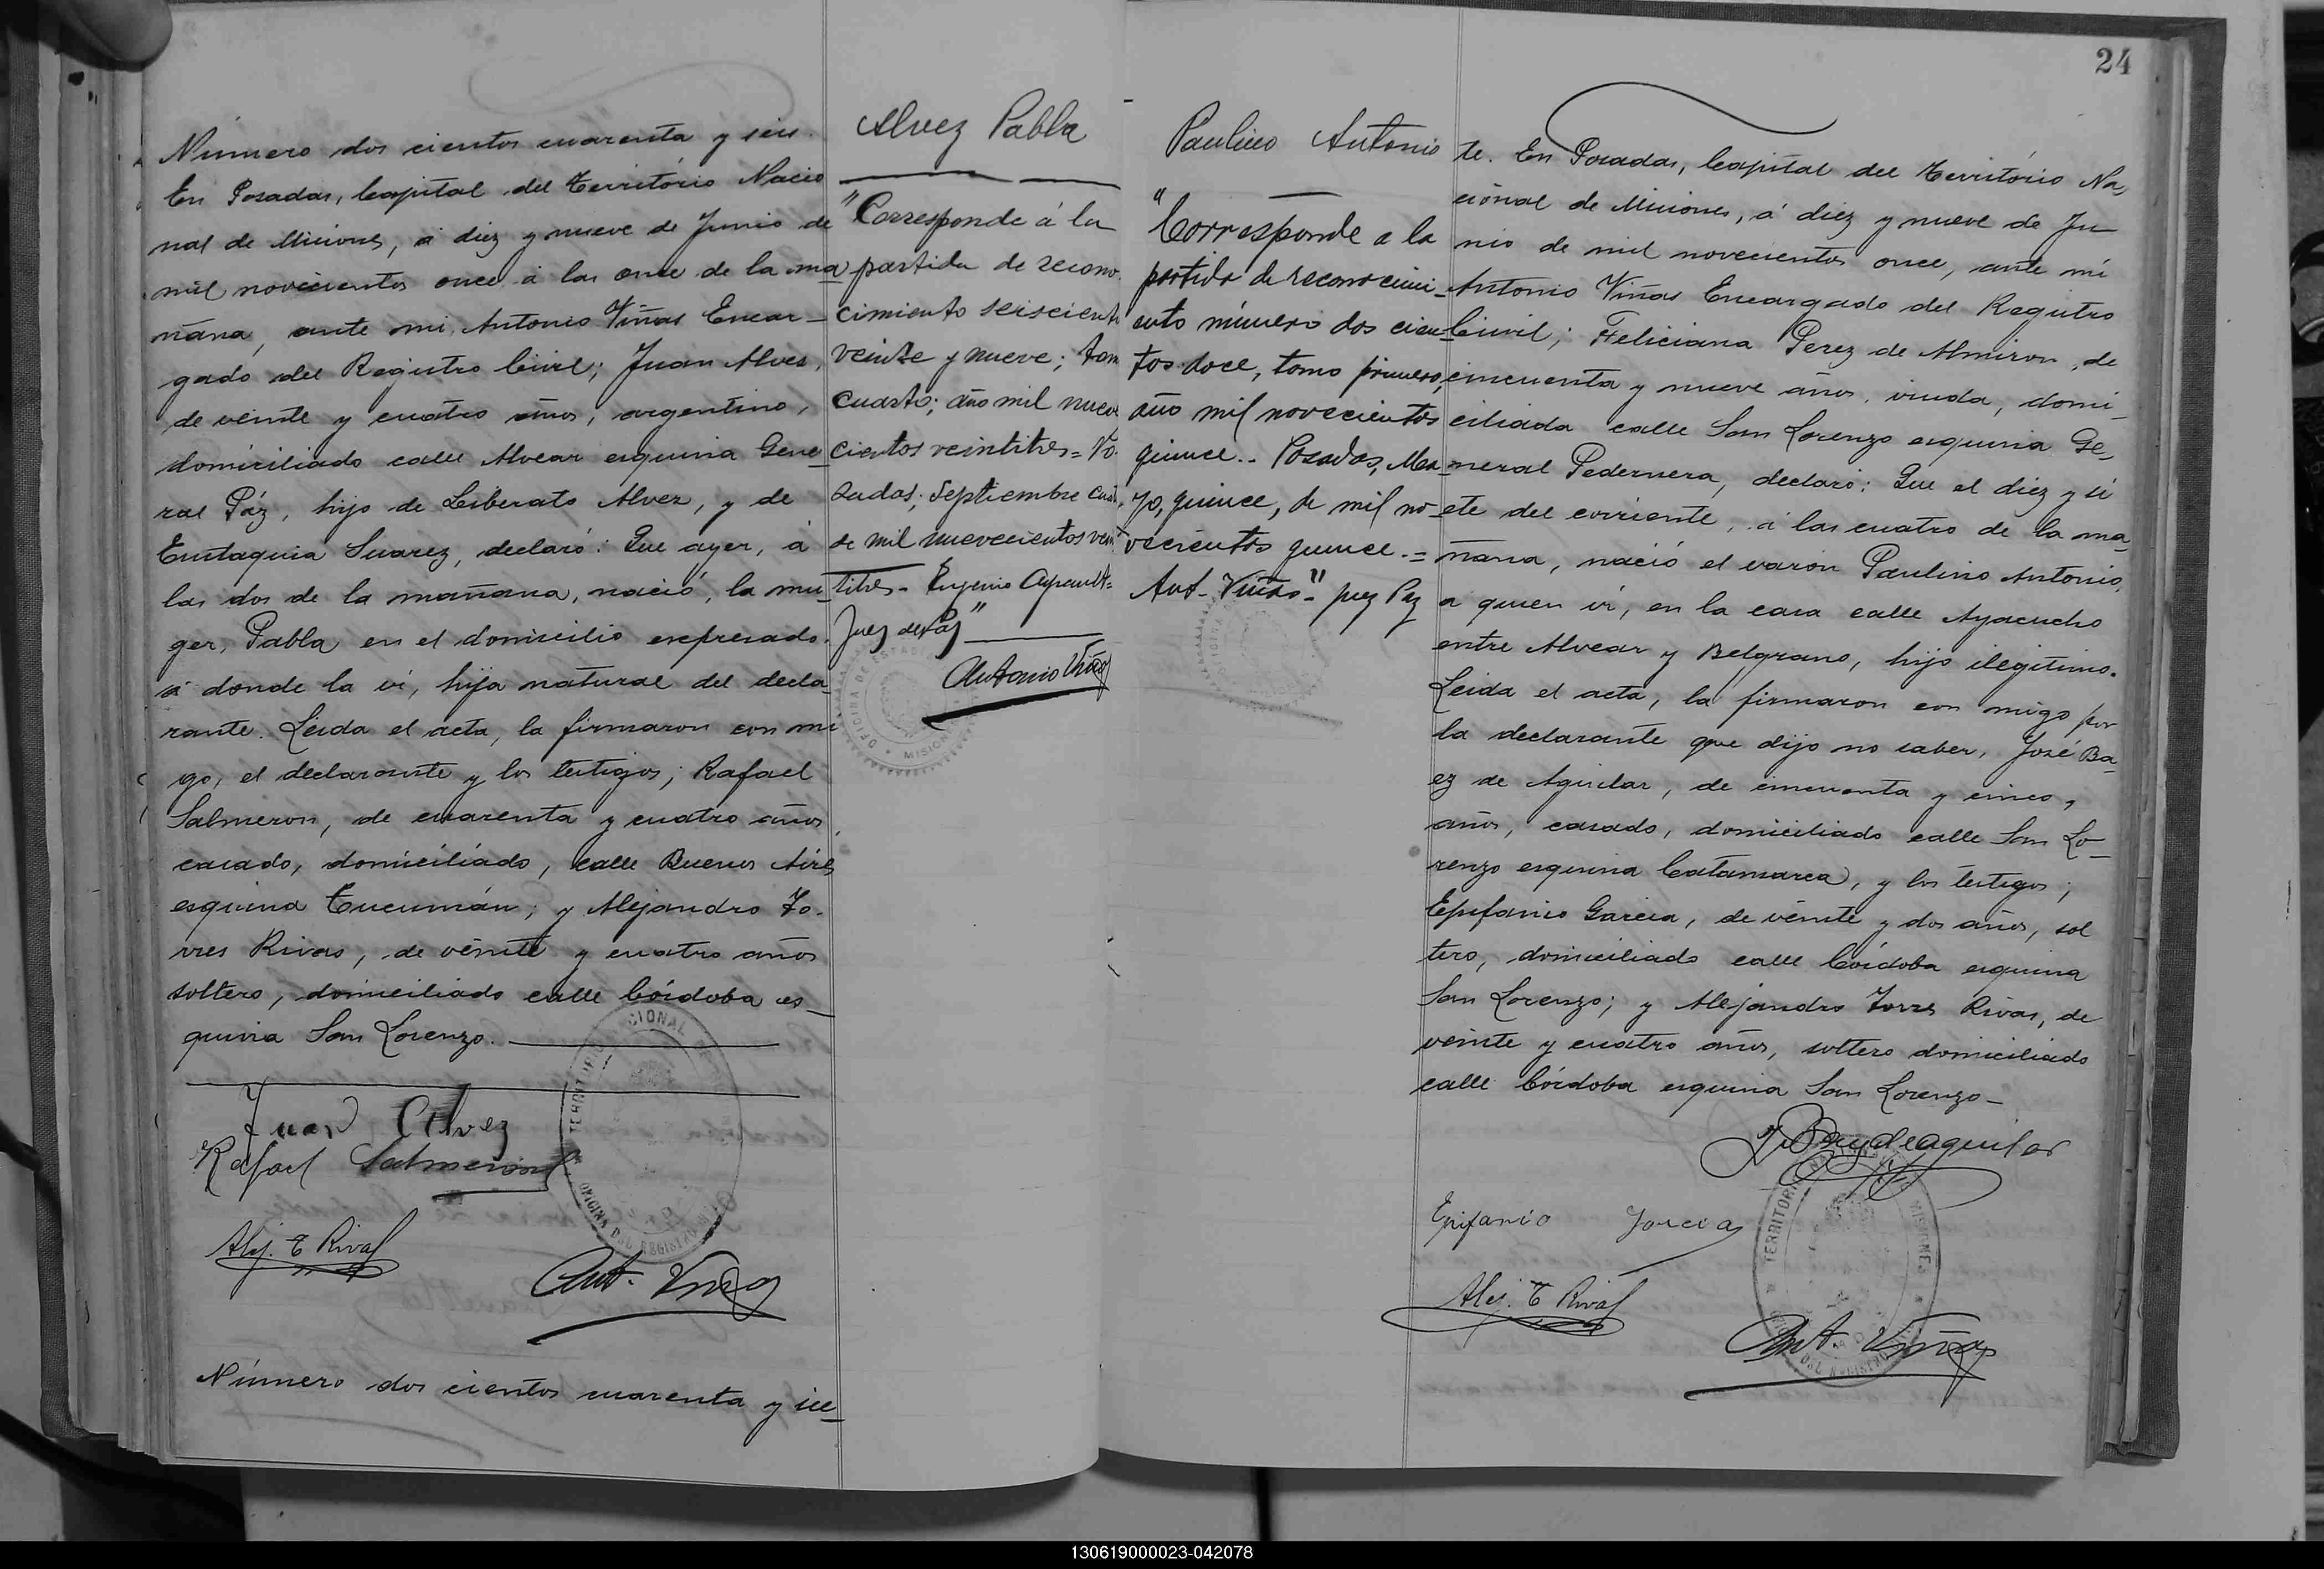 Número dos cientos cuarenta y seis.
En Posadas, Capital del Território Nacio
nal de Misiones, á diez y nueve de Junio de
mil novecientos once á las once de la ma
ñana, ante mi, Antonio Viñas Encar-
gado del Registro Civil; Juan Alves,
de veinte y cuatro años, argentino,
domiciliado calle Alvear esquina Gene-
ral Páz, hijo de Liberato Alvez, y de
Eustaquia Suarez, declaró: Que ayer, á
las dos de la mañana, nació, la mu-
ger, Pabla en el domicilio expresado.
á donde la ví, hija natural del decla-
rante. Leida el acta, la firmaron con mi
go, el declarante y los testigos; Rafael
Salmeron, de cuarenta y cuatro años
casado, domiciliado, calle Buenos Aires
esquina Tucumán; y Alejandro To-
rres Rivas, de veinte y cuatro años
soltero, domiciliado calle Córdoba es-
quina San Lorenzo.
Juan Alvez
Rafael Salmeron
Alej. T Rivas
Ant. Viñas
TERRITORIO NACIONAL
OFICINA DEL REGISTRO
Número dos cientos cuarenta y sie-
Alvez Pabla
"Corresponde á la
partida de recono-
cimiento seiscientos
veinte y nueve; tom
cuarto; año mil nueve
cientos veintitres = Po-
sadas; Septiembre
de mil nuevecientos vein
titres - Eugenio
Juez de Paz"
Antonio Viñas
OFICINA DE ESTAD
MISIO
24
Paulino Antonio
"Corresponde a la
partida de reconocimi-
ento número dos cien-
tos doce, tomo primero,
año mil novecientos
quince.. Posadas, Ma-
yo, quince, de mil no-
vecientos quince.=
Ant. Viñas" juez Paz
te. En Posadas, Capital del Território Na-
cional de Misiones, á diez y nueve de Ju-
nio de mil novecientos once, ante mi
Antonio Viñas Encargado del Registro
Civil; Feliciana Perez de Almiron, de
cincuenta y nueve años, viuda, domi-
ciliada calle San Lorenzo esquina Ge-
neral Pedernera, declaró: Que el diez y si
ete del corriente, á las cuatro de la ma-
ñana, nació el varón Paulino Antonio,
a quien ví, en la casa calle Ayacucho
entre Alvear y Belgrano, hijo ilegítimo.
Leida el acta, la firmaron con migo por
la declarante que dijo no saber, José Ba-
ez de Aguilar, de cincuenta y cinco,
años, casado, domiciliado calle San Lo-
renzo esquina Catamarca, y los testigos;
Epifanio Garcia, de veinte y dos años, sol
tero, domiciliado calle Córdoba esquina
San Lorenzo; y Alejandro Torres Rivas, de
veinte y cuatro años, soltero domiciliado
calle Córdoba esquina San Lorenzo-
J Baez de aguilar
Epifanio Garcia
Alej. T Rivas
Ant. Viñas
TERRITORIO NACIONAL MISIONES
DEL REGISTRO
130619000023-042078